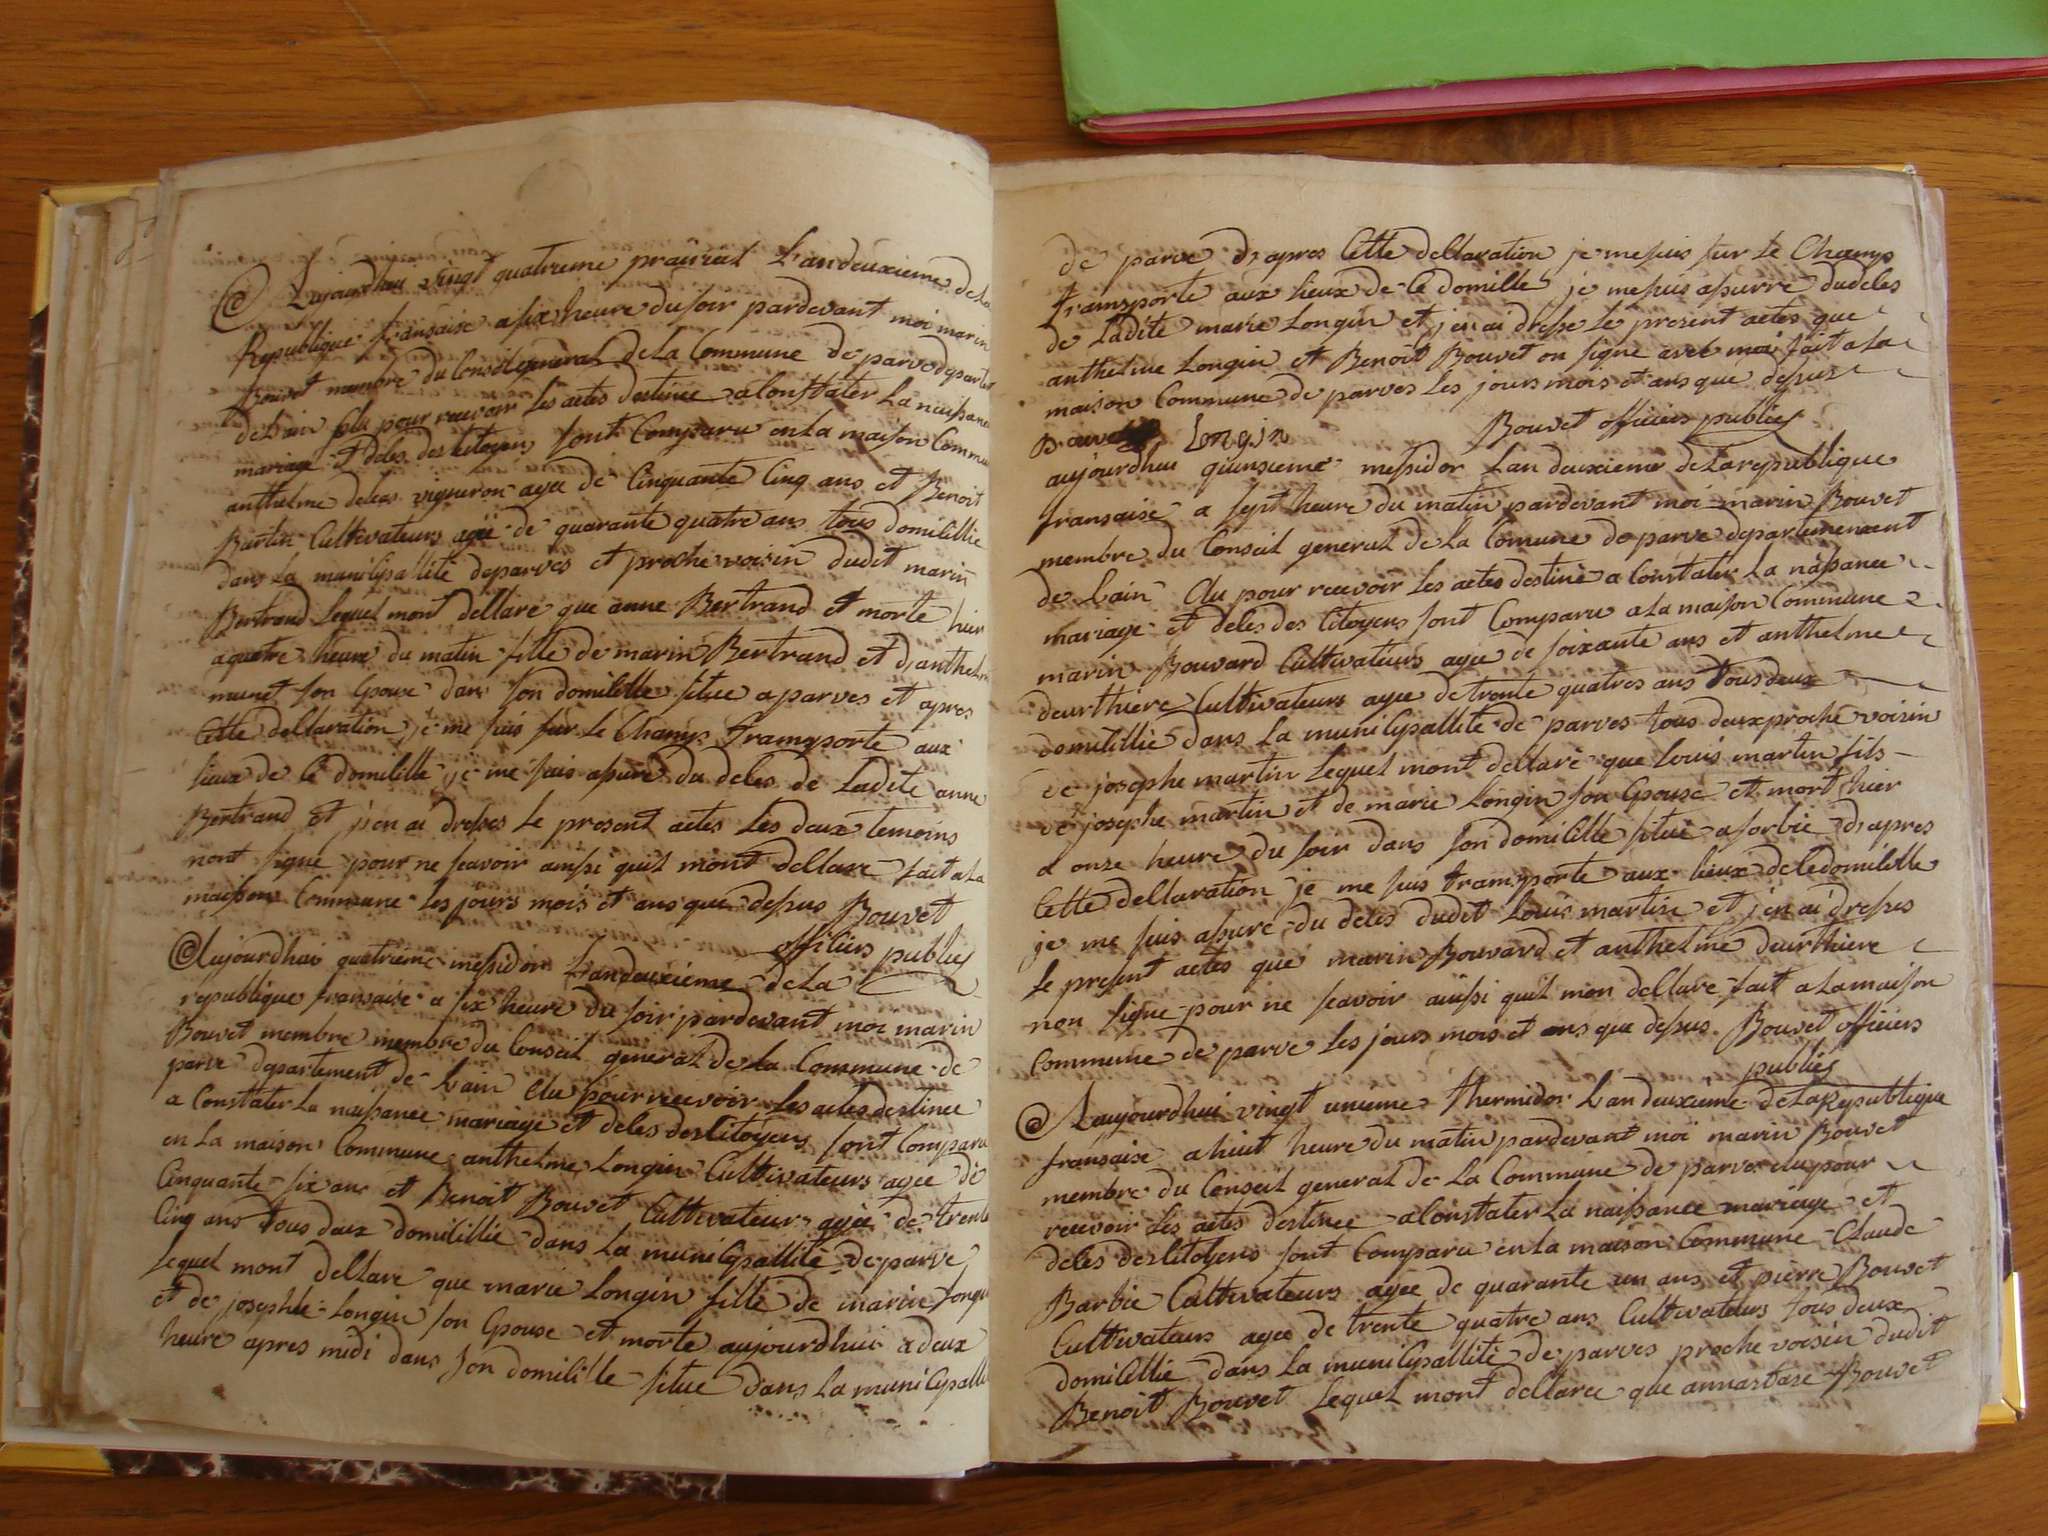 Aujourdhui vingt quatreme prairial L'an deuxieme de la
Republique fransaise a six heure du soir pardevant moi marin
Bouvet membre du Conseil general de la Commune de parve departe
de Lain elu pour recevoir les actes destinee a Constater La naissance
mariage et deles des Citoyens sont Comparu en La maison Commu
anthelme deleas vigneron agee de Cinquante Cinq ans et Benoit
Bartin Cultivateurs agee de quarante quatre ans tous domicillie
dans La municipallite de parves et proche voisin dudit marin
Bertrand Lequel mont dellare que anne Bertrand et morte hier
a quatre heure du matin fille de marin Bertrand et d'anthelme
munet son Epouse dans son domicille situe a parves et apres
Cette dellaration je me suis sur Le Champs transporte aux
lieux de Ce domicille je me suis asure du deles de Ladite anne
Bertrand et j'en ai dresses Le present actes Les deux temoins
nont signe pour ne seavoir ainsi quil mont dellare fait a La
maisson Commune les jours mois et ans que dessus Bouvet
officiers publics
Aujourdhui quatrieme messidor L'an deuxieme de La
republique fransaise a six heure du soir pardevant moi marin
Bouvet membre membre du Conseil general de La Commune de
parve departement de Lain elu pour recevoir Les actes destinee
a Constater La naissance mariage et deles des Citoyens sont Comparu
en La maison Commune anthelme Longin Cultivateurs agee de
Cinquante six ans et Benoit Bouvet Cultivateur agee de trente
Cinq ans tous deux domicillie dans La municipallite de parve
Lequel mont dellare que marie Longin fille de marin Longin
et de josephte Longin son Epouse et morte aujourdhui a deux
heure apres midi dans son domicille situe dans La municipalli
de parve d'apres Cette dellaration je me suis sur Le Champs
transporte aux lieux de Ce domille je me suis assurre du deles
de Ladite marie Longin et j'en ai dresse Le present actes que
anthelme Longin et Benoit Bouvet on signe avec moi fait a La
maison Commune de parves Les jours mois et ans que dessus
Bouvet Longin Bouvet officiers publics
aujourdhui quinsieme messidor Lan deuxieme de La republique
fransaise a sept heure du matin pardevant moi marin Bouvet
membre du Conseil general de La Comune de parve departemenent
de Lain elu pour recevoir Les actes destine a Constater La naissance
mariage et deles des Citoyens sont Comparu a La maison Commune
marin Bouvard Cultivateurs agee de soixante ans et anthelme
deurthiere Cultivateurs agee de trente quatres ans tous deux
domicillie dans La municipallite de parves tous deux proche voisin
de josephe martin Lequel mont dellare que Louis martin fils
de josephe martin et de marie Longin son Epouse et mort hier
a onze heure du soir dans son domicille situe a sorbie d'apres
Cette dellaration je me suis transporte aux lieux de Ce domicille
je me suis assure du deles dudit Louis martin et j'en ai dresses
Le present actes que marin Bouvard et anthelme deurthiere
non signe pour ne seavoir ainsi quil mon dellare fait a La maison
Commune de parve Les jours mois et ans que dessus Bouvet officiers
publics
Aujourdhui vingt unieme thermidor Lan deuxieme de La Republique
fransaise a huit heure du matin pardevant moi marin Bouvet
membre du Conseil general de La Commune de parves elu pour
recevoir Les actes destinee a Constater La naissance mariage et
deles des Citoyens sont Comparu en La maison Commune Claude
Barbie Cultivateurs agee de quarante un ans et pierre Bouvet
Cultivateurs agee de trente quatre ans Cultivateurs tous deux
domicillie dans La municipallite de parves proche voisin dudit
Benoit Bouvet Lequel mont dellaree que annastase Bouvet